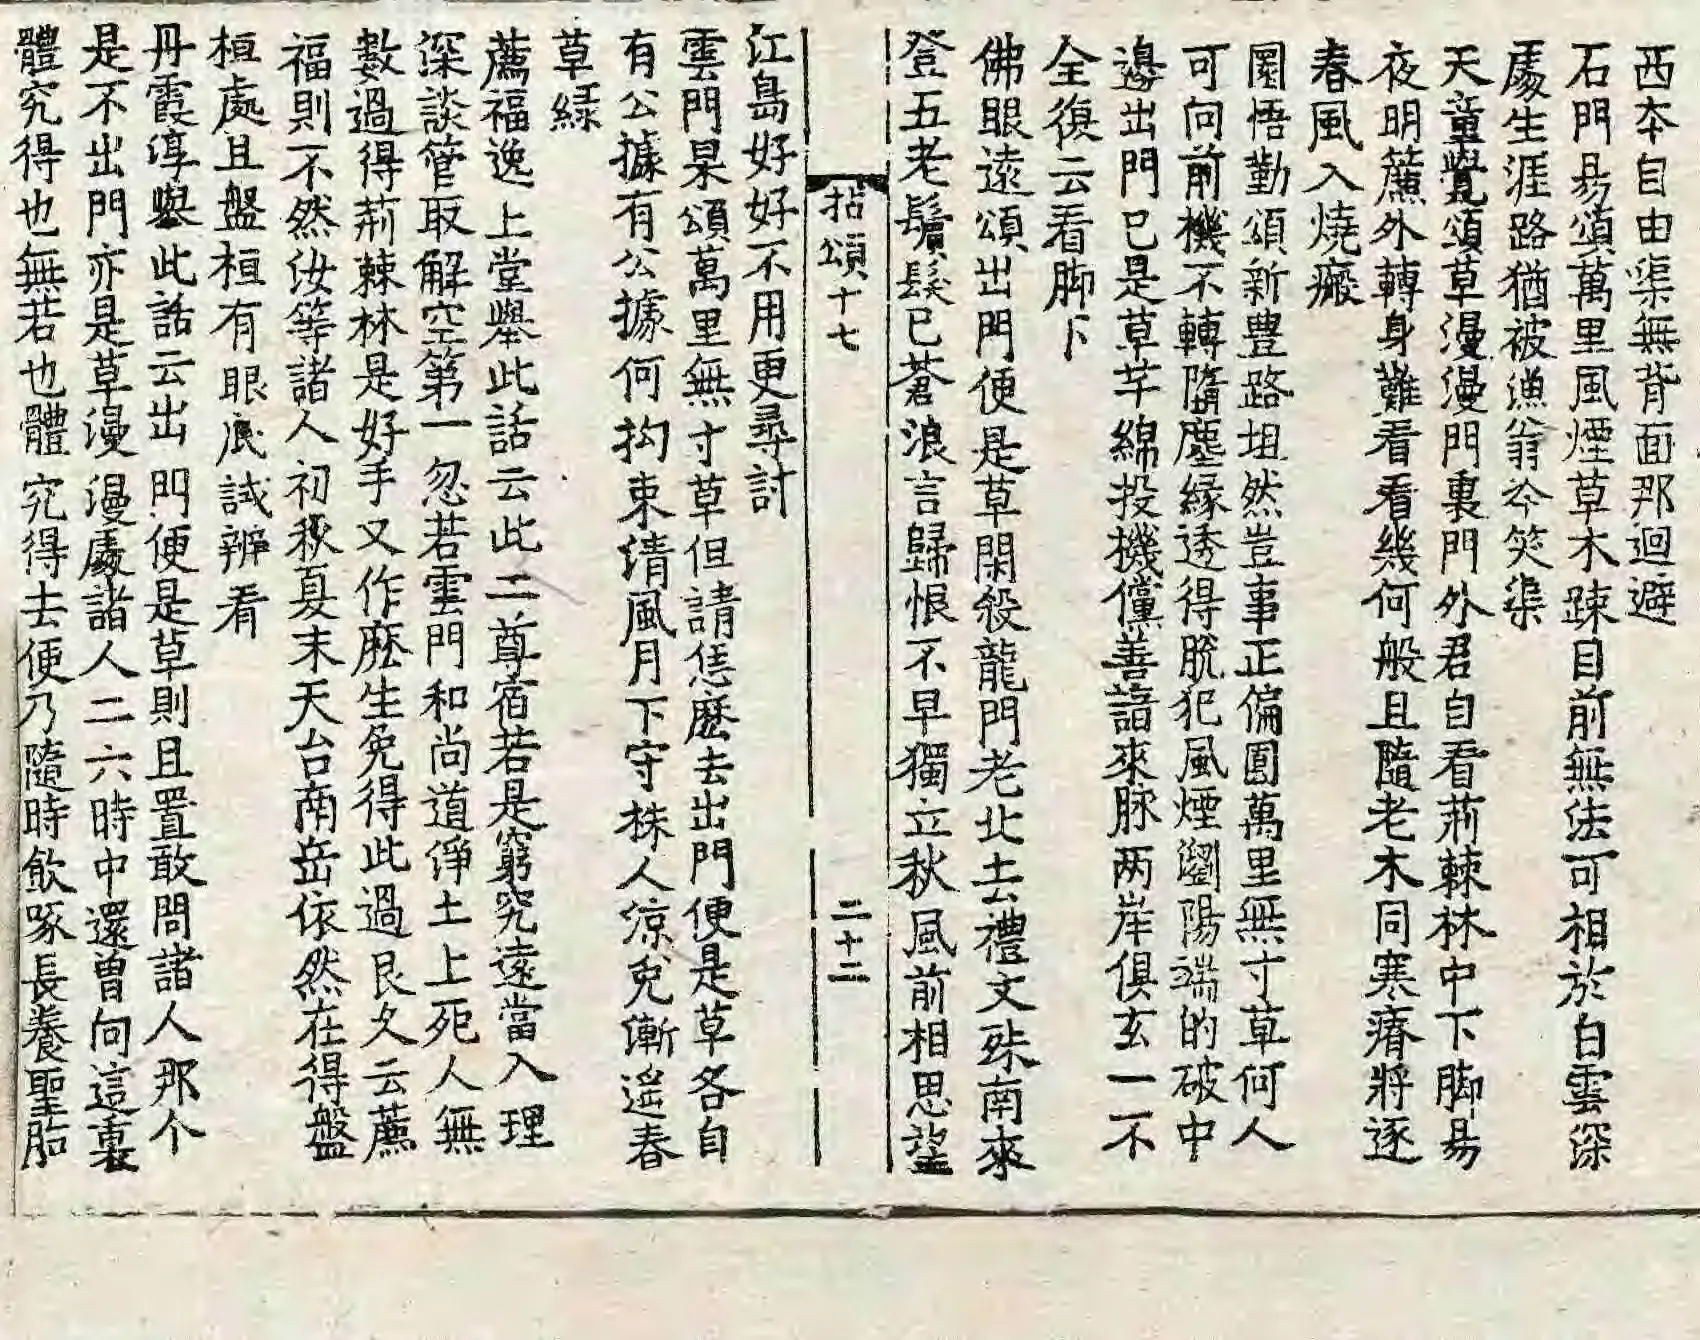 西本自由渠無背面那迴避
石門易頌萬里風煙草木踈目前無法可相於白雲深
處生涯路猶被漁翁冷笑渠
天童覺頌草漫漫門裏門外君自看荊棘林中下脚易
夜明簾外轉身難看看幾何般且隨老木同寒瘠將逐
春風入燒瘢
圜悟勤頌新豊路坦然豈事正偏圓萬里無寸草何人
可向前機不轉隨塵緣透得脫犯風煙瀏陽端的破中
邊出門已是草芊綿投機儻善諳來脉两岸俱玄一不
全復云看脚下
佛眼遠頌出門便是草閑殺龍門老北去禮文殊南來
登五老鬚髮已蒼浪言歸恨不早獨立秋風前相思望
拈頌十七
二十二
江島好好不用更尋討
雲門杲頌萬里無寸草但請恁麽去出門便是草各自
有公據有公據何拘束清風月下守株人凉兔漸遙春
草緑
薦福逸上堂舉此話云此二尊宿若是窮究遠當入理
深談管取解空第一忽若雲門和尚道淨土上死人無
數過得荊棘林是好手又作麽生免得此過良久云薦
福則不然汝等諸人初秋夏末天台南岳依然在得盤
桓處且盤桓有眼底試辨看
丹霞淳舉此話云出門便是草則且置敢問諸人那个
是不出門亦是草漫漫處諸人二六時中還曾向這裏
體究得也無若也體究得去便乃隨時飲啄長養聖胎